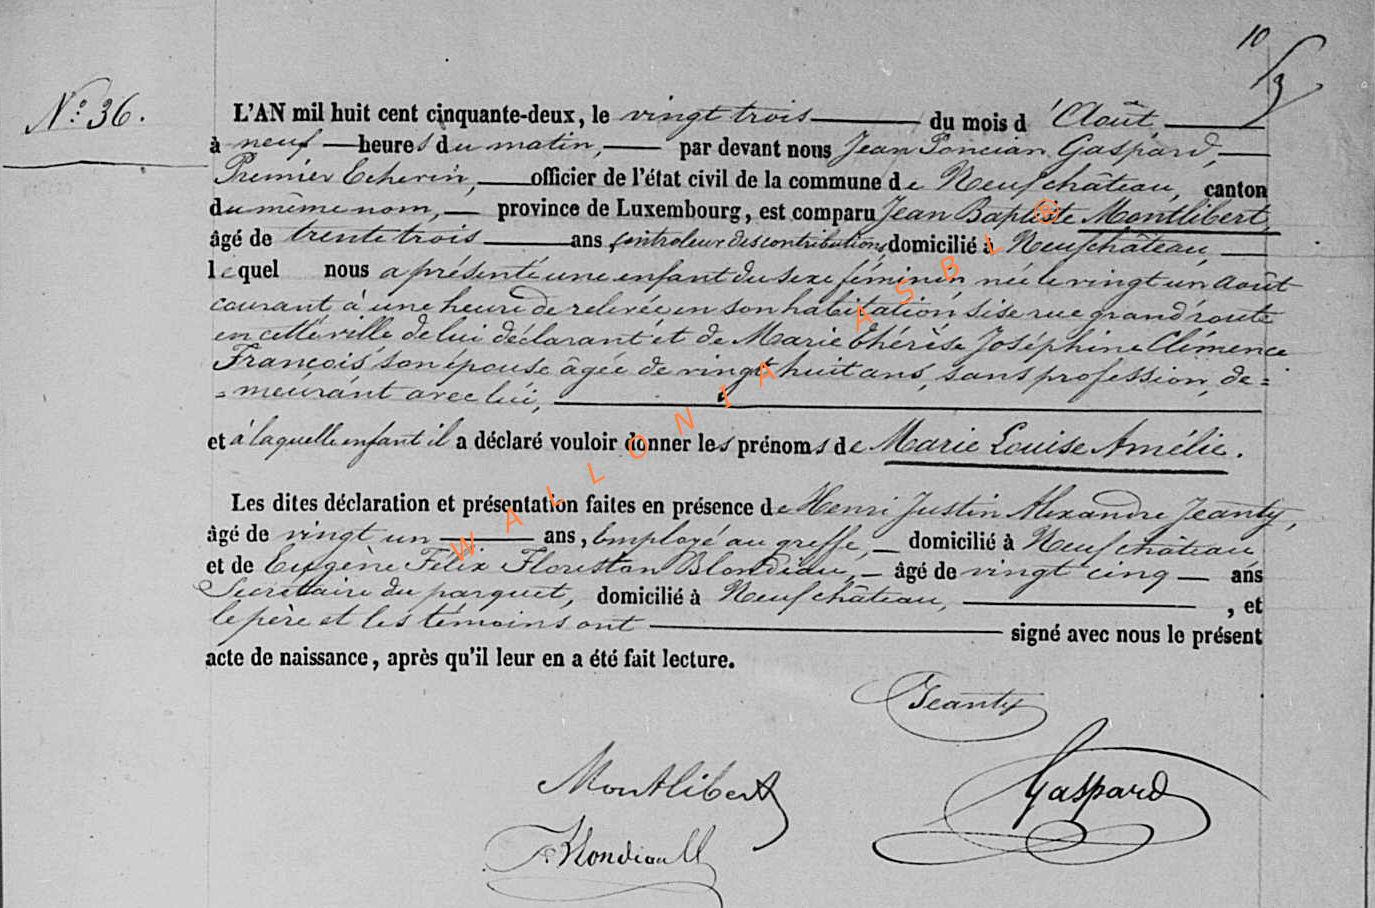 10
N.o 36.
L'AN mil huit cent cinquante-deux, le vingt trois du mois d'Août,
à neuf heures du matin, par devant nous Jean Poncian Gaspard,
Premier Echevin, officier de l'état civil de la commune de Neufchâteau, canton
du même nom, province de Luxembourg, est comparu Jean Baptiste Montlibert,
âgé de trente trois ans, controleur des contributions, domicilié à Neufchâteau,
lequel nous a présenté une enfant du sexe féminin, née le vingt un Août
courant à une heure de relevée en son habitation, sise rue grand'route
en cette ville de lui déclarant et de Marie Thérèse Joséphine Clémence
François son épouse âgée de vingt huit ans, sans profession, de=
=meurant avec lui,
et à laquelle enfant il a déclaré vouloir donner les prénoms de Marie Louise Amélie.
Les dites déclaration et présentation faites en présence de Henri Justin Alexandre Jeanty,
âgé de vingt un ans, Employé au greffe, domicilié à Neufchâteau
et de Eugène Félix Floristan Blondiau, âgé de vingt cinq ans
Secrétaire du parquet, domicilié à Neufchâteau, , et
le père et les témoins ont signé avec nous le présent
acte de naissance, après qu'il leur en a été fait lecture.
Jeanty
Montlibert
Gaspard
Blondiau
WALLONIA ASBL @